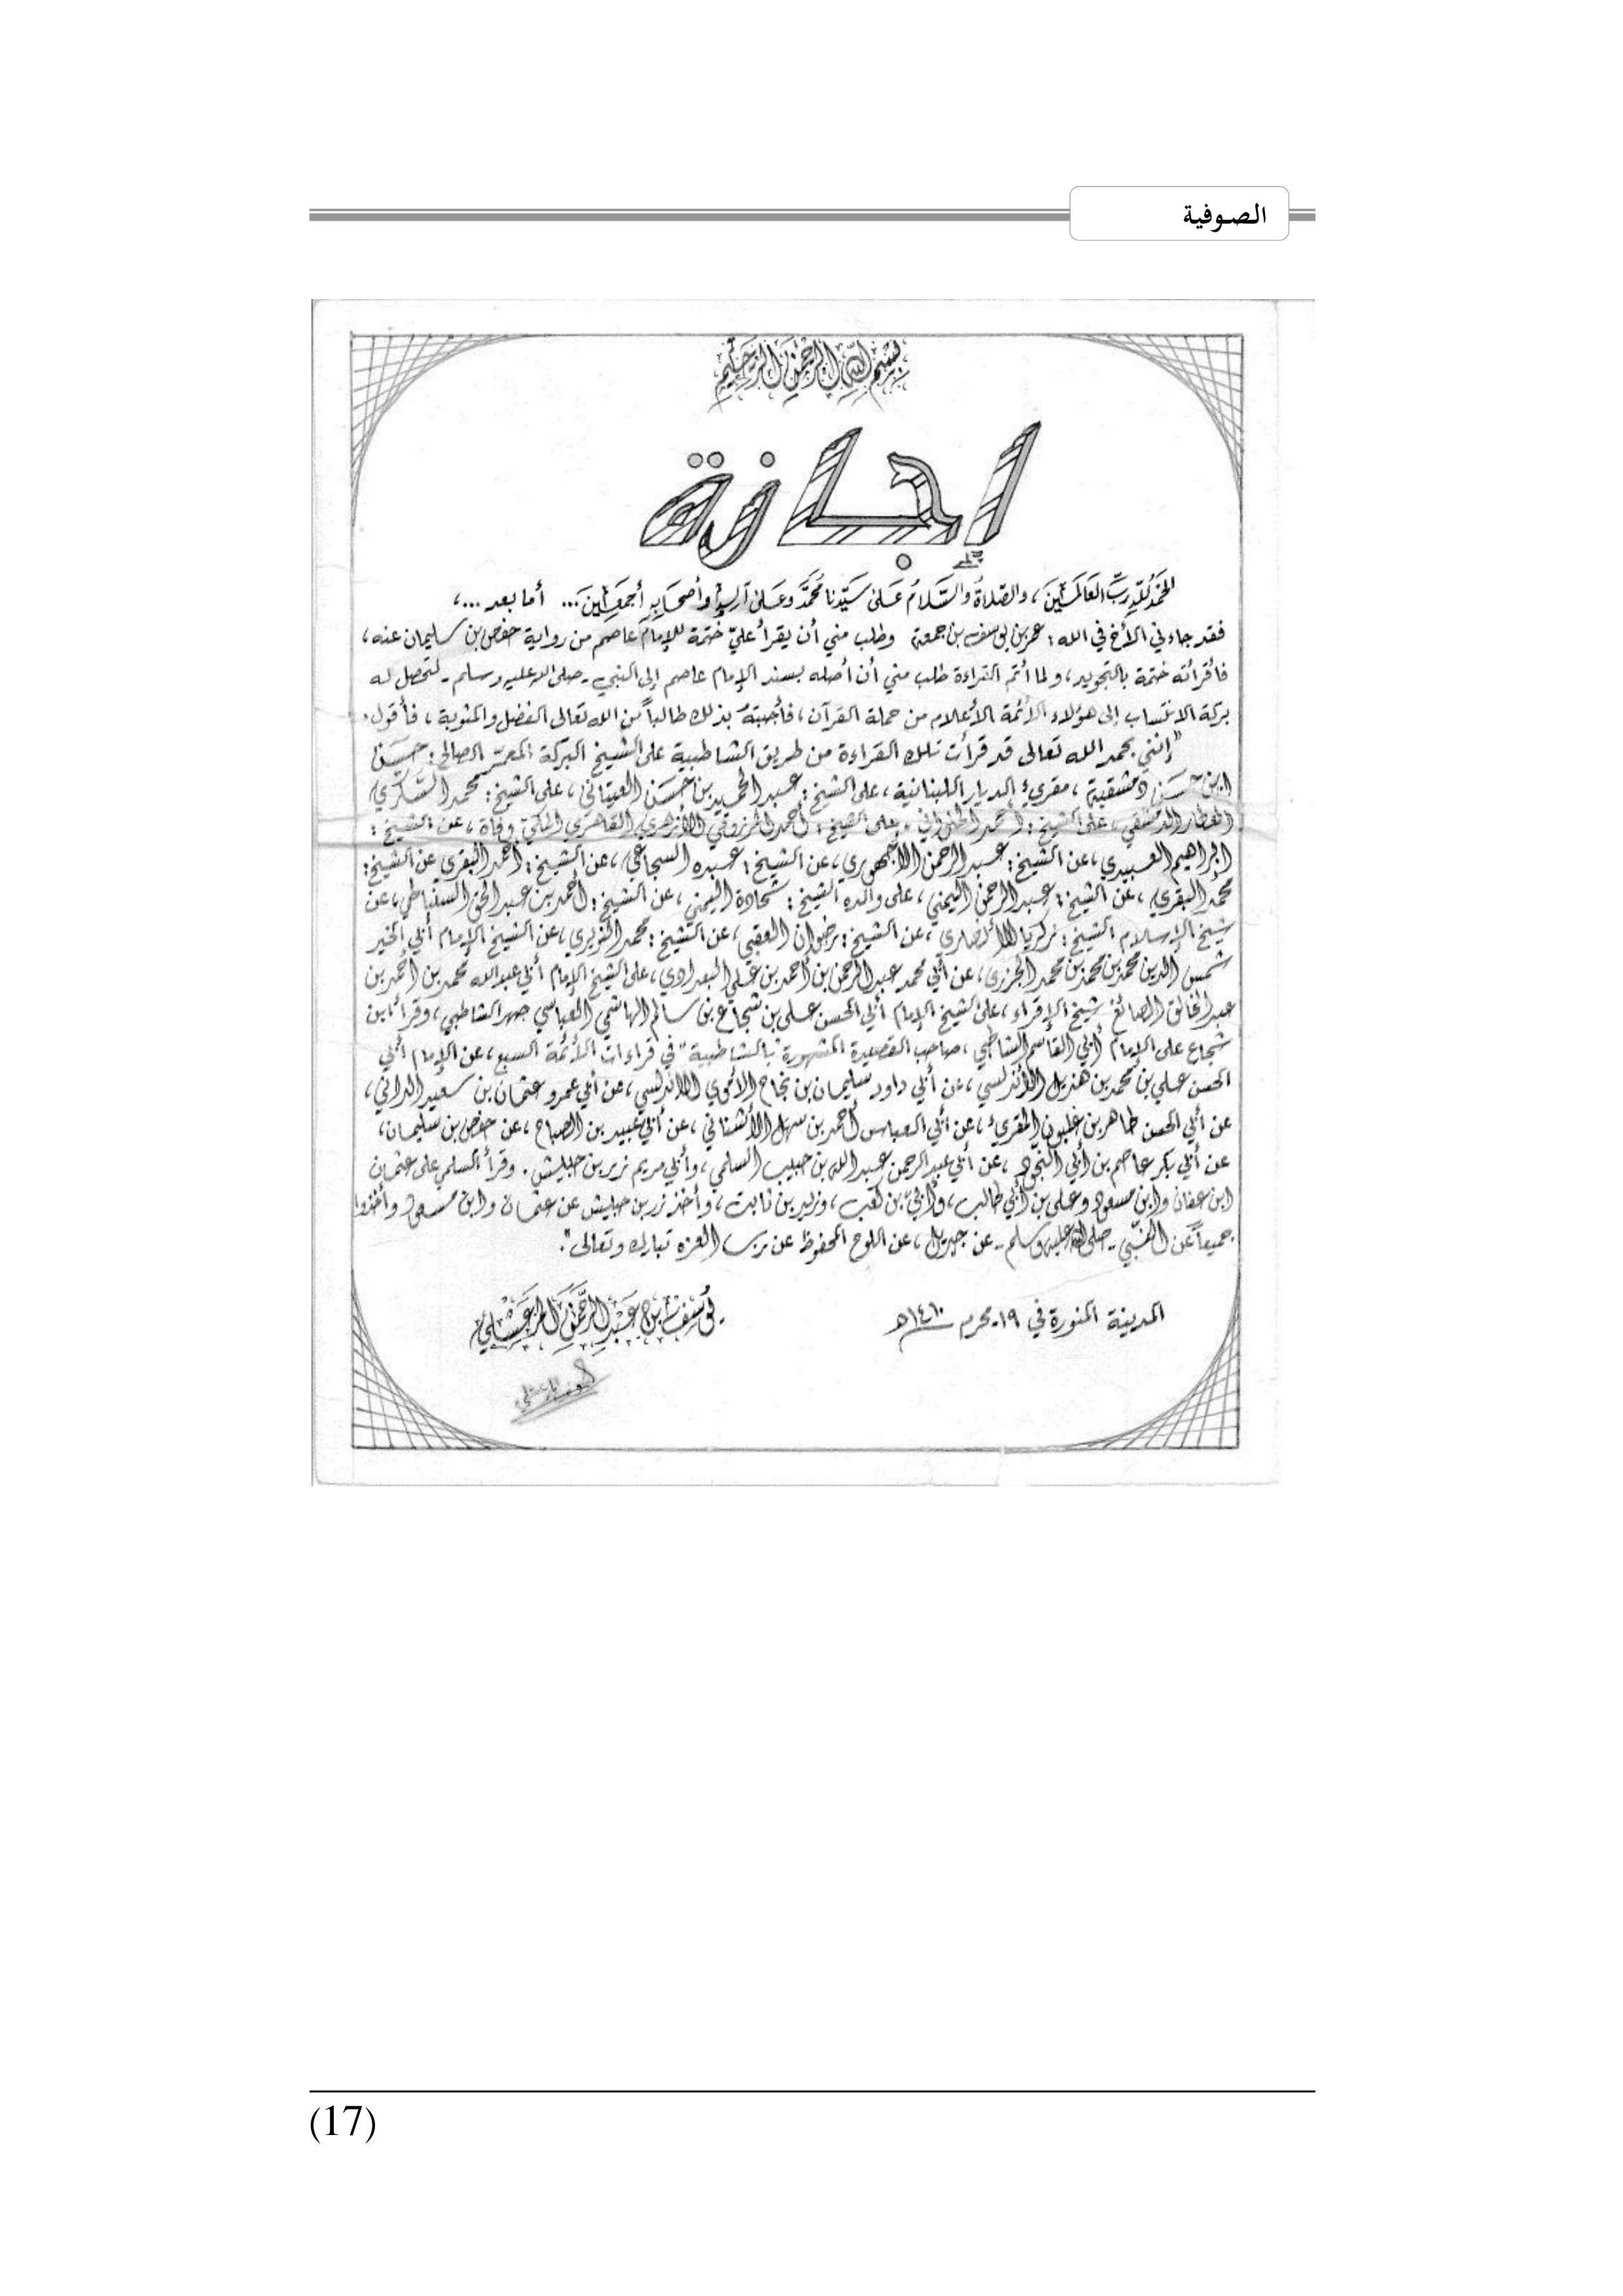 الصوفية
بسم الله الرحمن الرحيم
إجازة
الحَمْدُ للهِ رَبِّ العَالَمِينَ، والصَّلاةُ والسَّلامُ عَلىٰ سَيِّدنا مُحَمَّد وعَلىٰ آلِهِ وأصحَابِهِ أجمَعِينَ... أما بعد...،
فقد جاءني الأخ في الله: عمر بن يوسف بن جمعة وطلب مني أن يقرأ عليّ ختمة للإمام عاصم من رواية حفص بن سليمان عنه،
فأقرأته ختمة بالتجويد، ولما أتم القراءة طلب مني أن أصله بسند الإمام عاصم إلى النبي - صلى الله عليه وسلم - لتحصل له
بركة الانتساب إلى هؤلاء الأئمة الأعلام من حملة القرآن، فأجبته بذلك طالباً من الله تعالى الفضل والمثوبة، فأقول:
"إنني بحمد الله تعالى قد قرأت تلك القراءة من طريق الشاطبية على الشيخ البركة المعمّر الصالح: حسن
ابن حسن دمشقية، مقرىء الديار اللبنانية، على الشيخ: عبد الحميد بن حسن العيتاني، على الشيخ: محمد السكري
العطار الدمشقي، على الشيخ: أحمد الحلواني، على الشيخ: أحمد المرزوقي الأزهري القاهري المكي وفاة، عن الشيخ:
إبراهيم العبيدي، عن الشيخ: عبد الرحمن الأجهوري، عن الشيخ: عبده السجاعي، عن الشيخ: أحمد البقري عن الشيخ:
محمد البقري، عن الشيخ: عبد الرحمن اليمني، على والده الشيخ: شحادة اليمني، عن الشيخ: أحمد بن عبد الحق السنباطي، عن
شيخ الإسلام الشيخ: زكريا الأنصاري، عن الشيخ: رضوان العقبي، عن الشيخ: محمد النويري، عن الشيخ الإمام أبي الخير
شمس الدين محمد بن محمد بن محمد الجزري، عن أبي محمد عبد الرحمن بن أحمد بن علي البغدادي، على الشيخ الإمام أبي عبد الله محمد بن أحمد بن
عبد الخالق الصائغ شيخ الإقراء، على الشيخ الإمام أبي الحسن علي بن شجاع بن سالم الهاشمي العباسي صهر الشاطبي، وقرأ ابن
شجاع على الإمام أبي القاسم الشاطبي، صاحب القصيدة المشهورة "بالشاطبية" في قراءات الأئمة السبع، عن الإمام أبي
الحسن علي بن محمد بن هذيل الأندلسي، عن أبي داود سليمان بن نجاح الأموي الأندلسي، عن أبي عمرو عثمان بن سعيد الداني،
عن أبي الحسن طاهر بن غلبون المقرىء، عن أبي العباس أحمد بن سهل الأشناني، عن أبي عبيد بن الصباح، عن حفص بن سليمان،
عن أبي بكر عاصم بن أبي النجود، عن أبي عبد الرحمن عبد الله بن حبيب السلمي، وأبي مريم زر بن حبيش. وقرأ السلمي على عثمان
ابن عفان وابن مسعود وعلي بن أبي طالب، وأُبيّ بن كعب، وزيد بن ثابت، وأخذ زر بن حبيش عن عثمان وابن مسعود وأخذوا
جميعاً عن النبي - صلى الله عليه وسلم - عن جبريل، عن اللوح المحفوظ عن رب العزه تبارك وتعالى".
المدينة المنورة في ١٩ محرم ١٤١٠هـ
يوسف بن عبد الرحمن المرعشلي
(17)